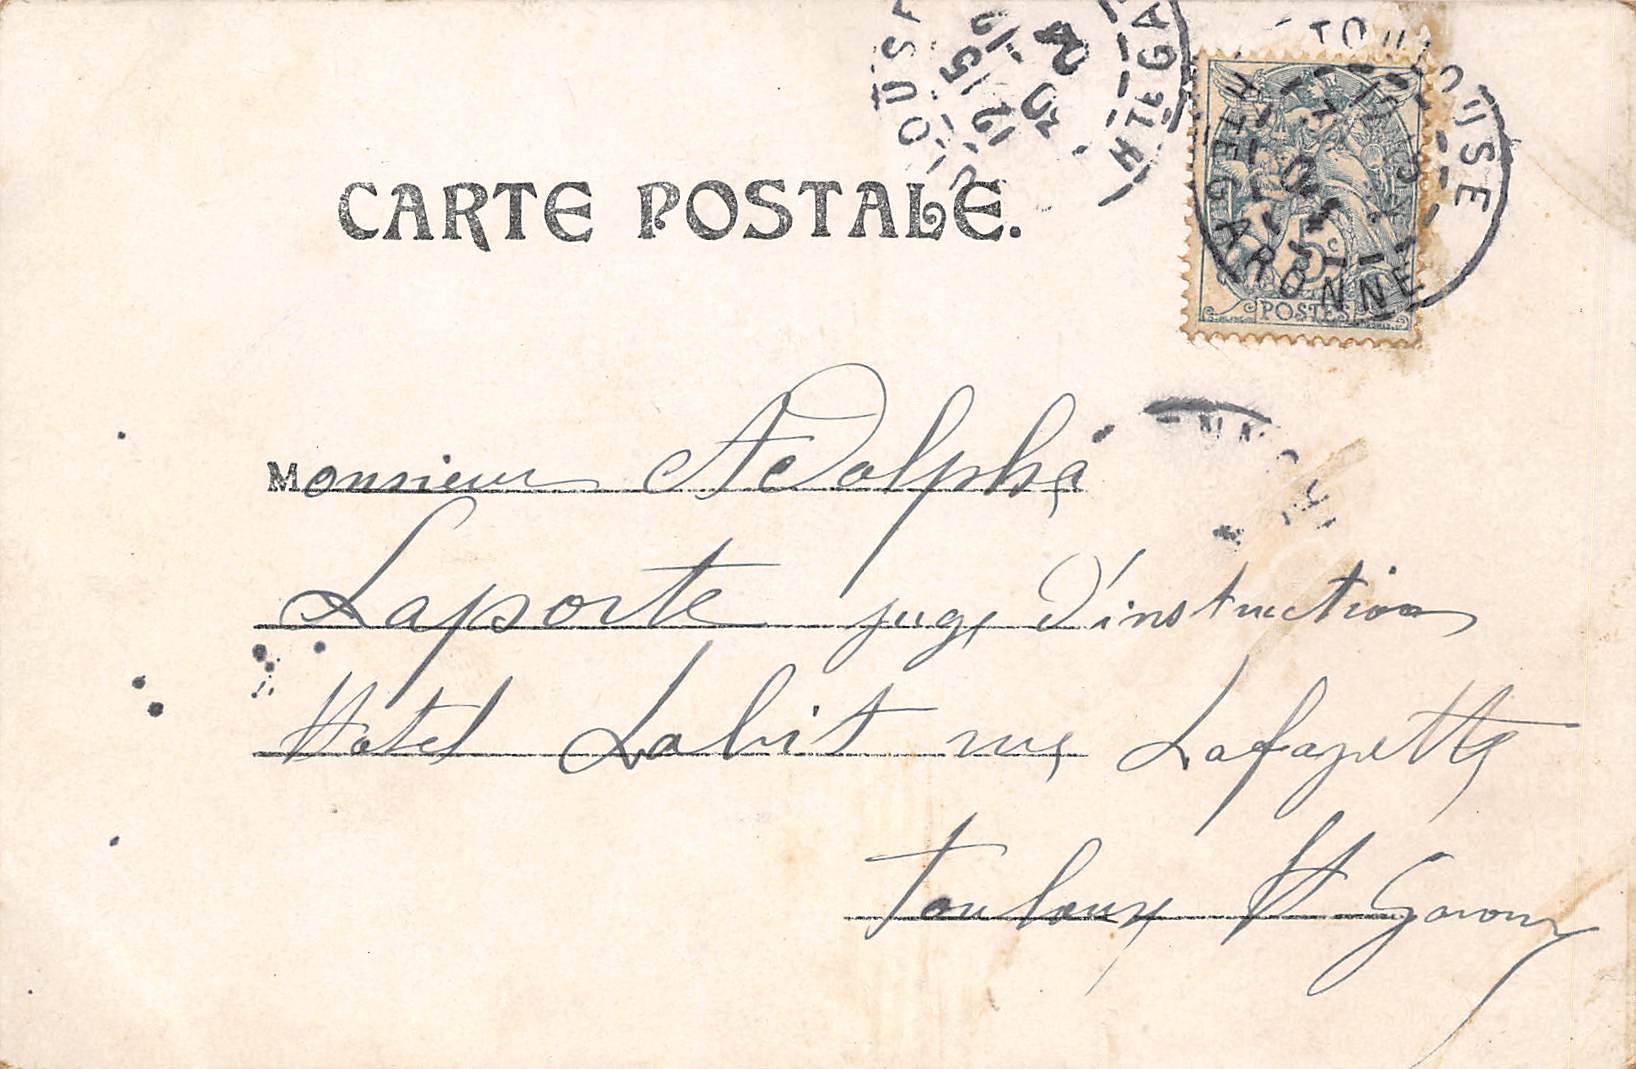 CARTE POSTALE.
TOULOUSE
HTE GARONNE
5c
POSTES
Monsieur Adolphe
Laporte juge d'instruction
Hotel Labit rue Lafayette
Toulouse Hte Garonne